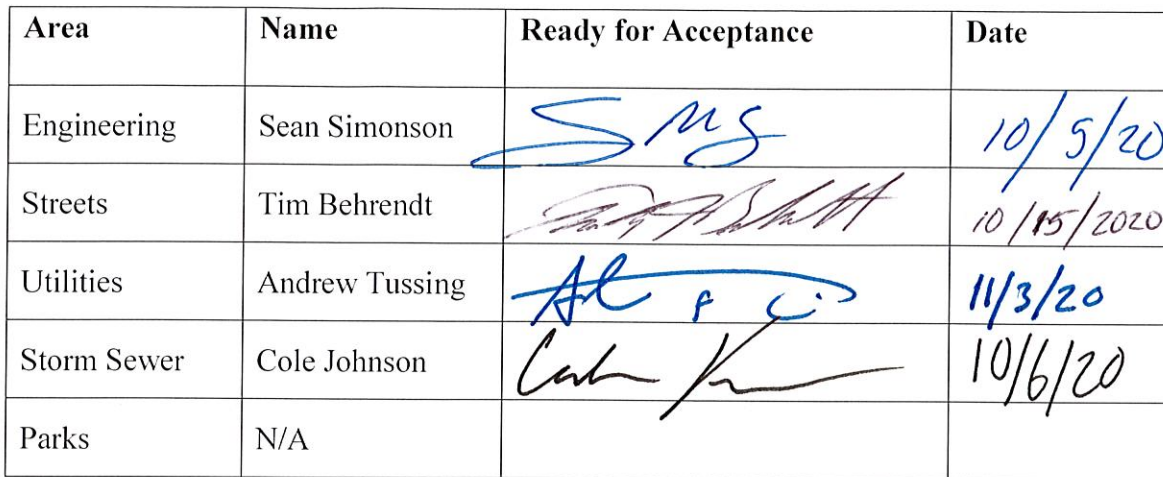 Area Name Ready for Acceptance Date
Engineering Sean Simonson 10/5/20
Streets Tim Behrendt 10/15/2020
Utilities Andrew Tussing 11/3/20
Storm Sewer Cole Johnson 10/6/20
Parks N/A